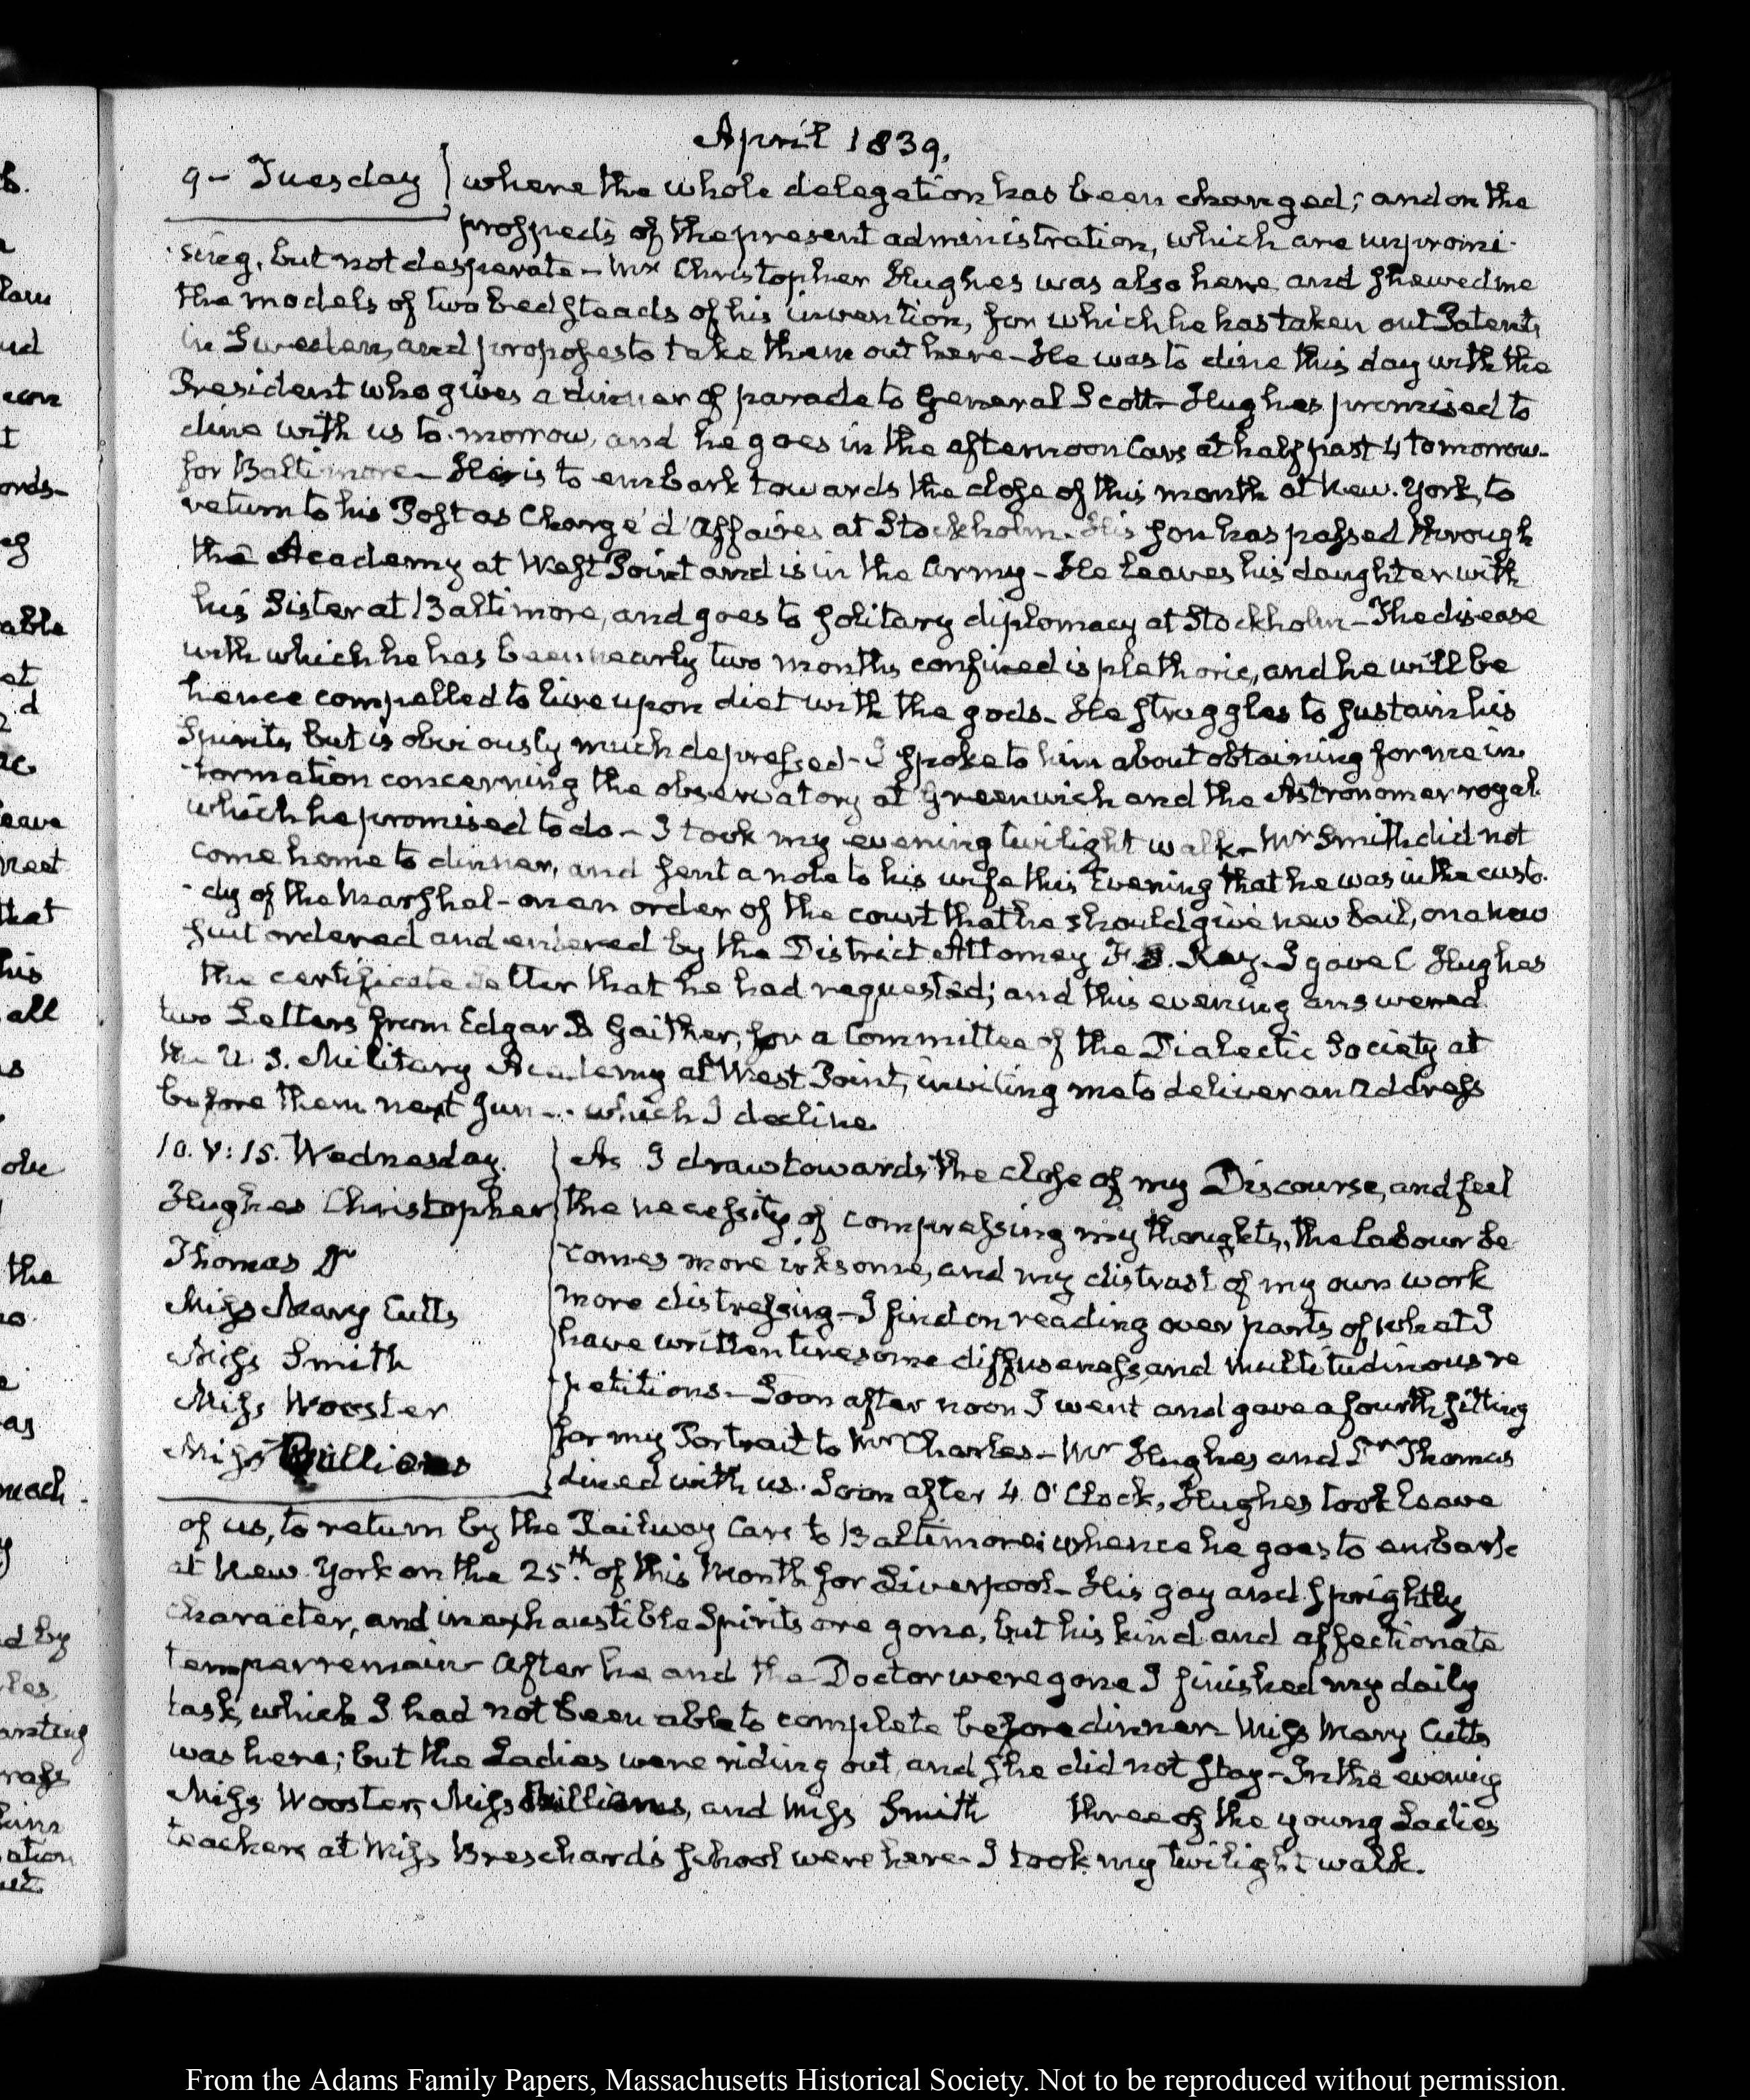 April 1839.
9 – Tuesday } where the whole delegation has been changed; and on the
prospects of the present administration, which are unpromi-
sing, but not desperate – Mr Christopher Hughes was also here and shewed me
the models of two bedsteads of his invention, for which he has taken out Patents
in Sweden, and proposes to take them out here – He was to dine this day with the
President who gives a dinner of parade to General Scott – Hughes promised to
dine with us to-morrow, and he goes in the afternoon Cars at half past 4 tomorrow
for Baltimore – He is to embark towards the close of this month at New-York, to
return to his Post as Chargé d'Affaires at Stockholm. His son has passed through
the Academy at West Point and is in the Army – He leaves his daughter with
his Sister at Baltimore, and goes to solitary diplomacy at Stockholm – The disease
with which he has been nearly two months confined is plethoric, and he will be
hence compelled to live upon diet with the gods – He struggles to sustain his
Spirits but is obviously much depressed – I spoke to him about obtaining for me in-
formation concerning the observatory at Greenwich and the Astronomer royal
which he promised to do – I took my evening twilight walk – Mr Smith did not
come home to dinner, and sent a note to his wife this Evening that he was in the custo-
dy of the Marshal – on an order of the court that he should give new bail, on a new
suit ordered and entered by the District Attorney F. S. Key – I gave C Hughes
the certificate Letter that he had requested; and this evening answered
two Letters from Edgar B Gaither, for a Committee of the Dialectic Society at
the U. S. Military Academy at West Point, inviting me to deliver an Address
before them next June – which I decline.
10. V: 15. Wednesday.
Hughes Christopher
Thomas Dr
Miss Mary Cutts
Miss Smith
Miss Wooster
Miss
As I draw towards the close of my Discourse, and feel
the necessity of compressing my thoughts, the labour be-
comes more irksome, and my distrust of my own work
more distressing – I find on reading over parts of what I
have written tiresome diffuseness, and multitudinous re-
petitions – Soon after noon I went and gave a fourth sitting
for my Portrait to Mr Charles – Mr Hughes and Dr Thomas
dined with us. Soon after 4. O'Clock, Hughes took leave
of us, to return by the Railway Cars to Baltimore; whence he goes to embark
at New-York on the 25.th of this Month for Liverpool – His gay and sprightly
character, and inexhaustible Spirits are gone, but his kind and affectionate
temper remain – After he and the Doctor were gone I finished my daily
task, which I had not been able to complete before dinner – Miss Mary Cutts
was here; but the Ladies were riding out, and she did not stay – In the evening
Miss Wooster, Miss and Miss Smith three of the young Ladies
teachers at Miss Breschard's school were here – I took my twilight walk.
From the Adams Family Papers, Massachusetts Historical Society. Not to be reproduced without permission.